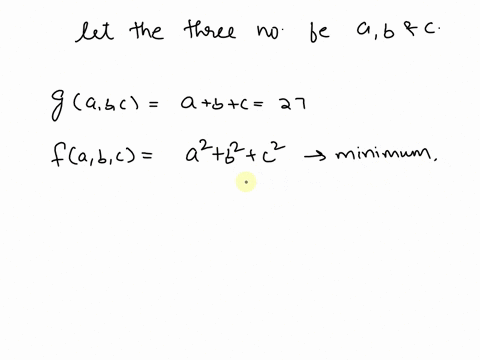 let the three no. be a, b & c.
g(a,b,c) = a+b+c = 27
f(a,b,c) = a²+b²+c² → minimum.